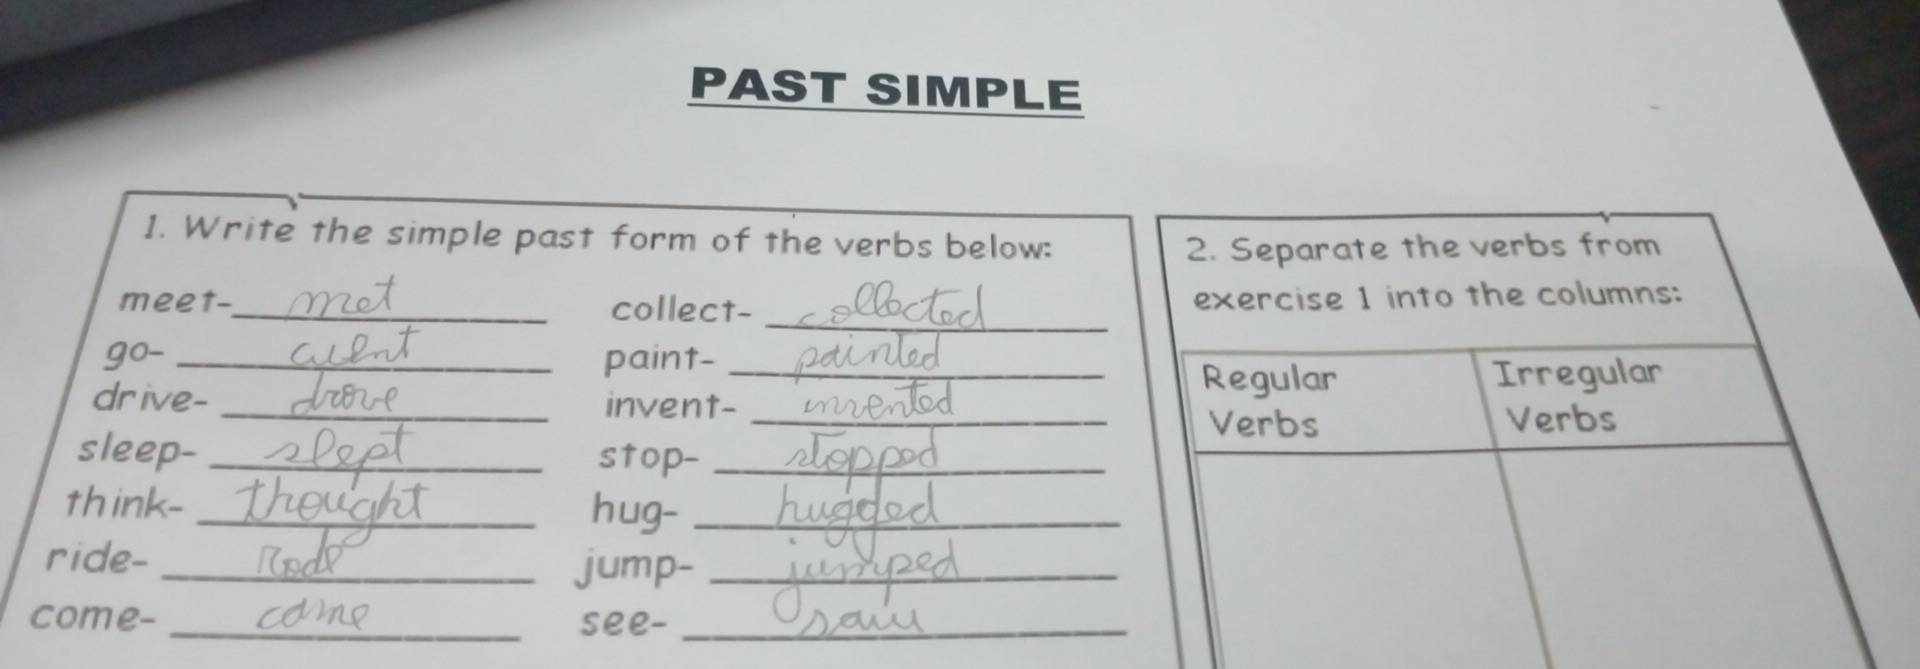 PAST SIMPLE
1. Write the simple past form of the verbs below:
meet- met
go- went
drive- drove
sleep- slept
think- thought
ride- Rode
come- came
collect- collected
paint- painted
invent- invented
stop- stopped
hug- hugged
jump- jumped
see- saw
2. Separate the verbs from
exercise 1 into the columns:
Regular
Verbs
Irregular
Verbs